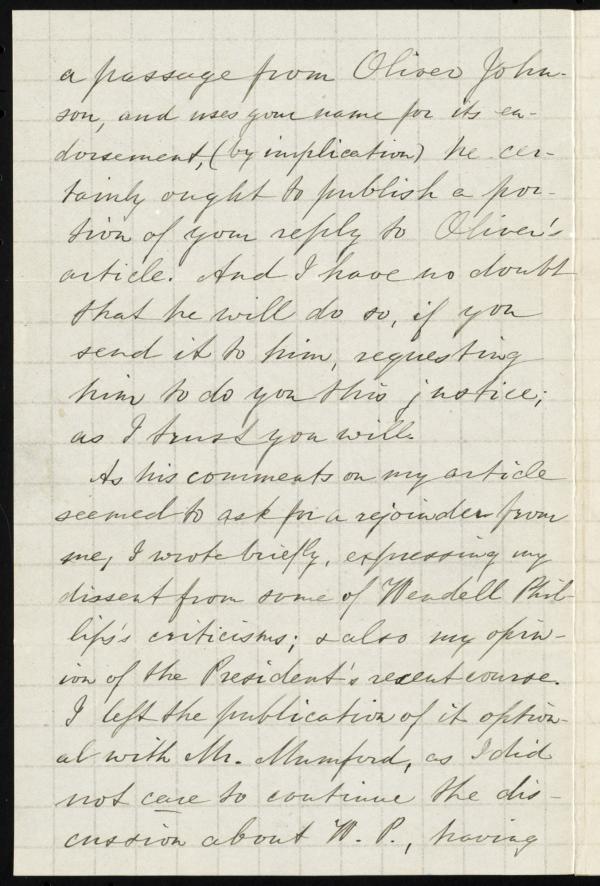 a passage from Oliver John-
son, and uses your name for its en-
dorsement, (by implication) he cer-
tainly ought to publish a por-
tion of your reply to Oliver's
article. And I have no doubt
that he will do so, if you
send it to him, requesting
him to do you this justice;
as I trust you will.
As his comments on my article
seemed to ask for a rejoinder from
me, I wrote briefly, expressing my
dissent from some of Wendell Phil-
lips's criticisms; & also my opin-
ion of the President's recent course.
I left the publication of it option-
al with Mr. Mumford, as I did
not care to continue the dis-
cussion about W. P., having